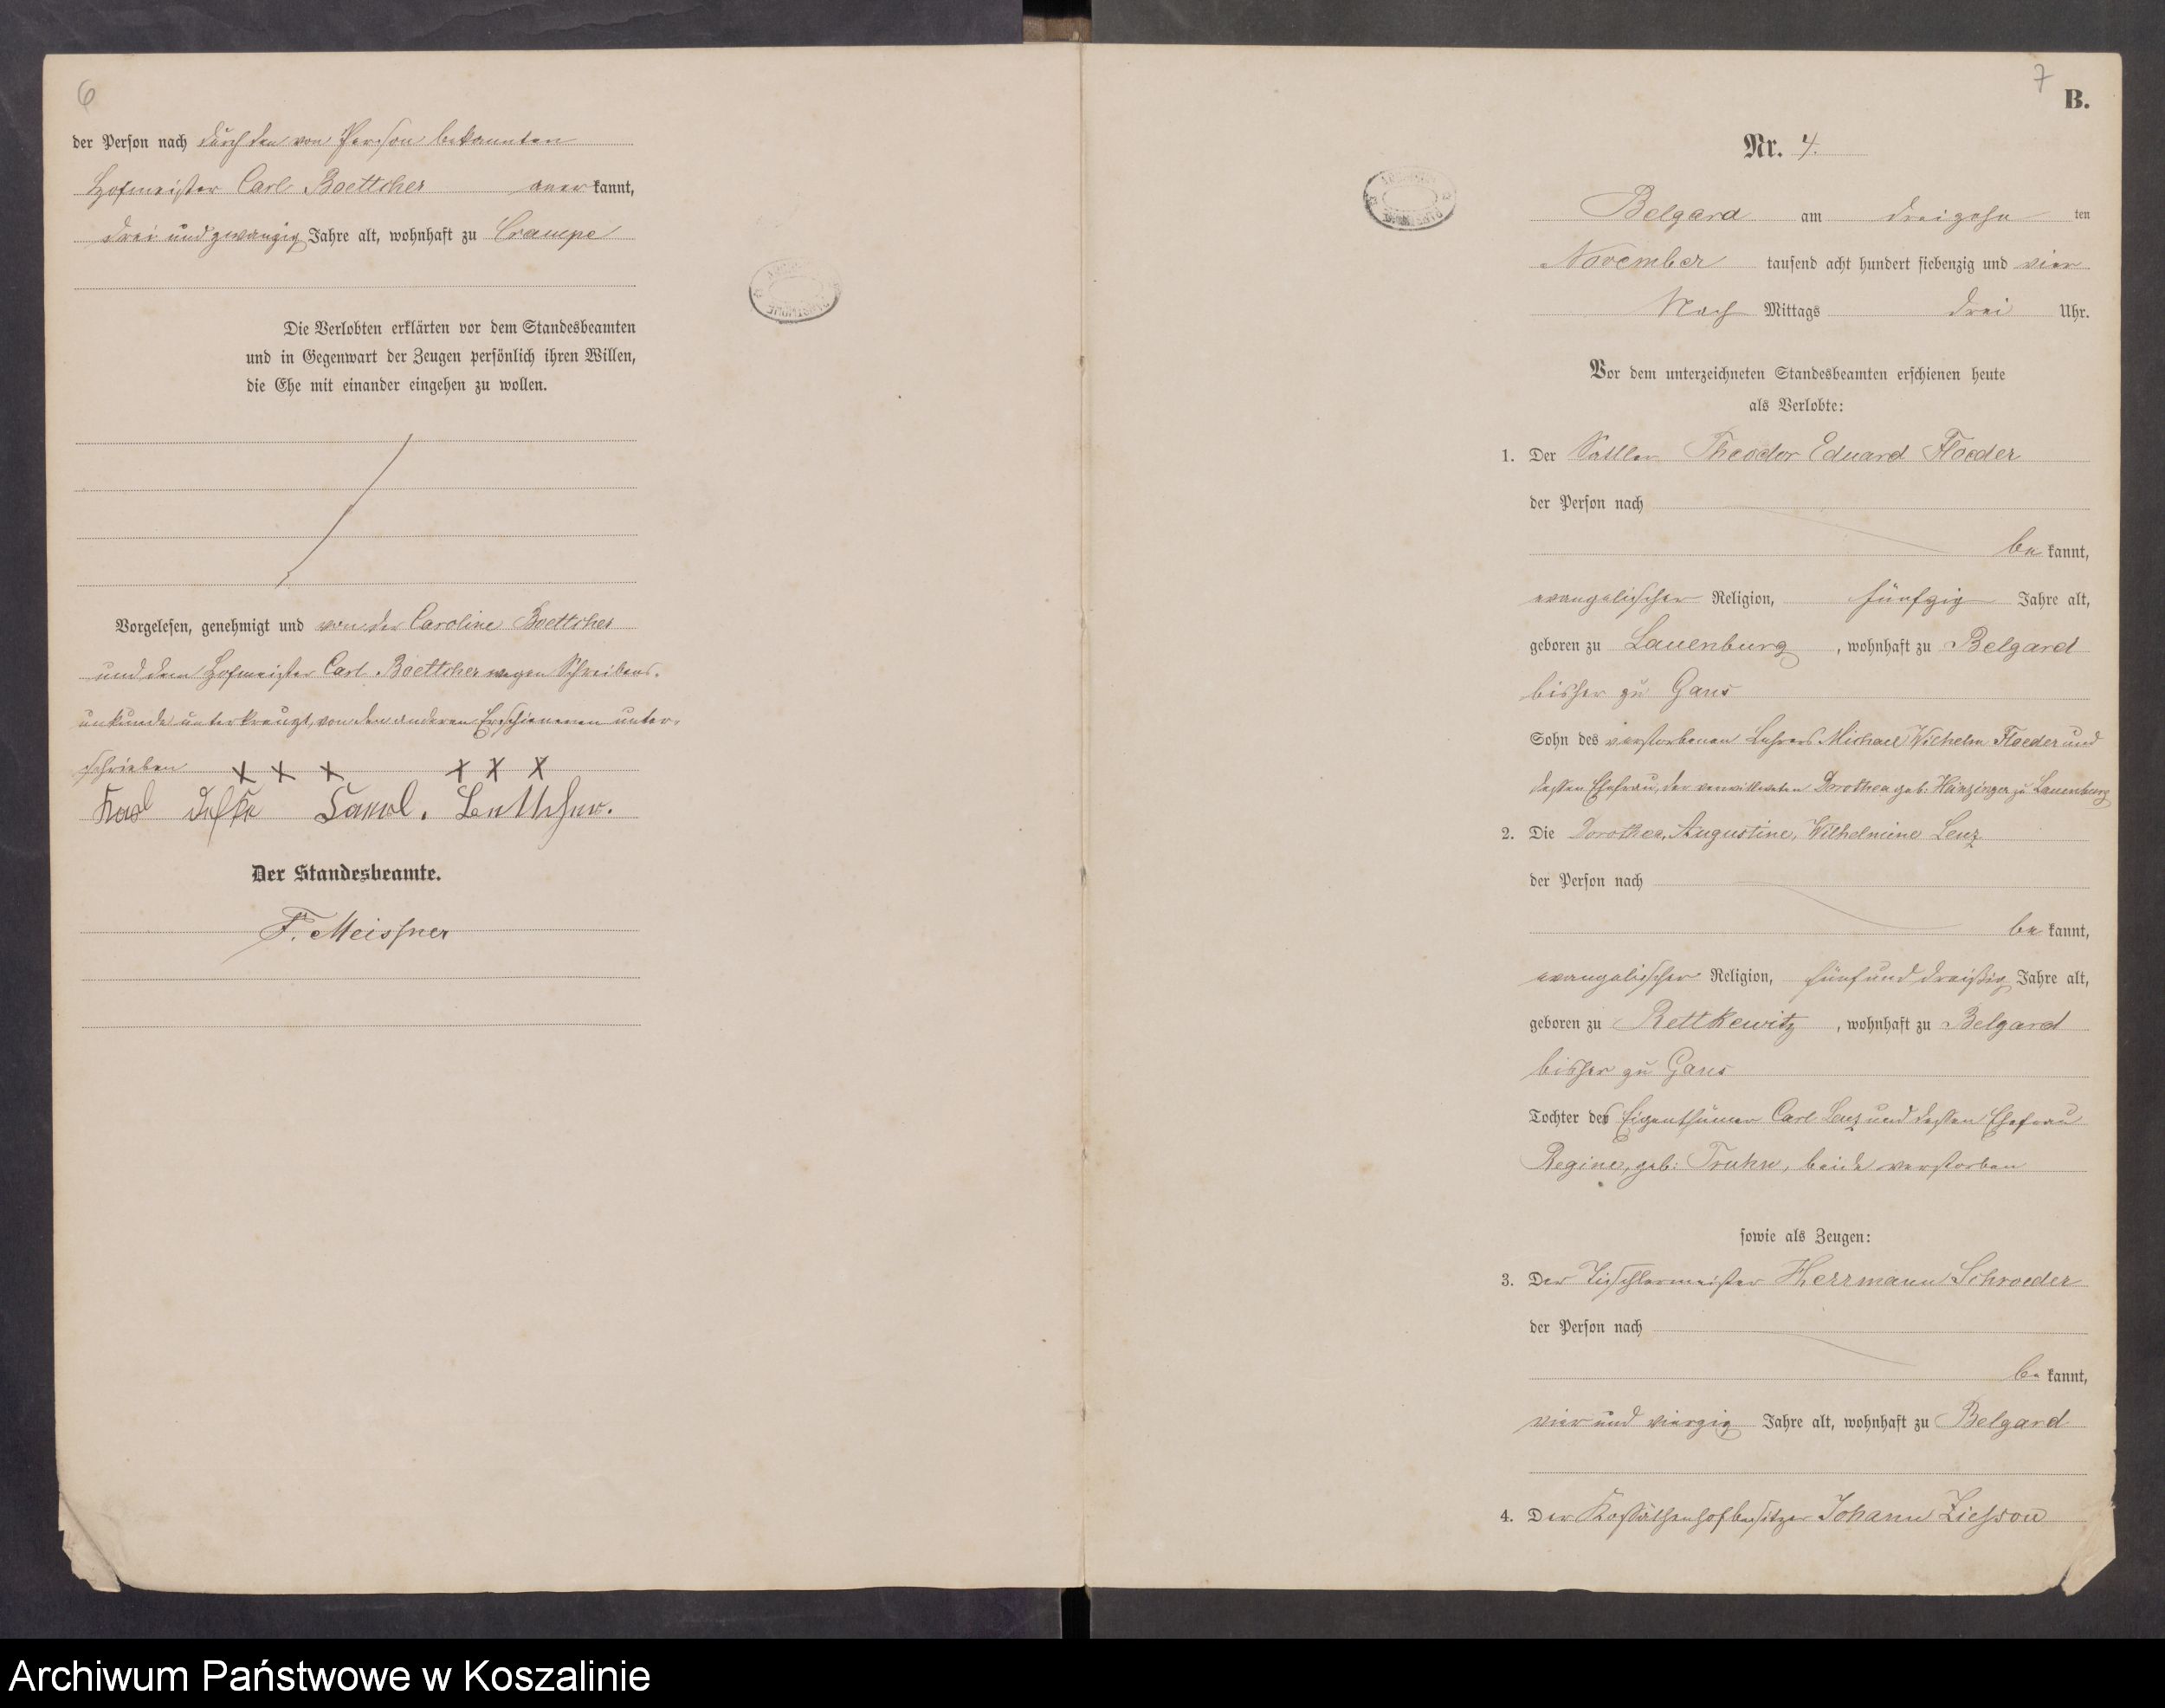 6
der Person nach durch den von Person bekannten
Hofmeister Carl Boettcher anerkannt,
drei und zwanzig Jahre alt, wohnhaft zu Crampe
Die Verlobten erklärten vor dem Standesbeamten
und in Gegenwart der Zeugen persönlich ihren Willen,
die Ehe mit einander eingehen zu wollen.
Vorgelesen, genehmigt und von der Caroline Boettcher
und dem Hofmeister Carl Boettcher wegen Schreibens-
unkunde unterkreuzt, von den anderen Erschienenen unter-
schrieben x x x x x x
Karl
Der Standesbeamte.
F. Meissner
7
B.
Nr. 4.
Belgard am dreizehn ten
November tausend acht hundert siebenzig und vier
Nach Mittags drei Uhr.
Vor dem unterzeichneten Standesbeamten erschienen heute
als Verlobte:
1. Der Sattler Theodor Eduard Floeder
der Person nach
bekannt,
evangelischer Religion, fünfzig Jahre alt,
geboren zu Lauenburg, wohnhaft zu Belgard
bisher zu Gans
Sohn des verstorbenen Lehrers Michael Wilhelm Floeder und
dessen Ehefrau, der verwittweten Dorothea geb. zu Lauenburg
2. Die Dorothea, Augustine, Wilhelmine Lenz
der Person nach
bekannt,
evangelischer Religion, fünf und dreißig Jahre alt,
geboren zu Rettkewitz, wohnhaft zu Belgard
bisher zu Gans
Tochter des Eigenthümer Carl Lenz und dessen Ehefrau
Regine, geb: Truhn, beide verstorben
sowie als Zeugen:
3. Der Tischlermeister Herrmann Schroeder
der Person nach
bekannt,
vier und vierzig Jahre alt, wohnhaft zu Belgard
4. Der Kossäthenhofbesitzer Johann
Archiwum Państwowe w Koszalinie